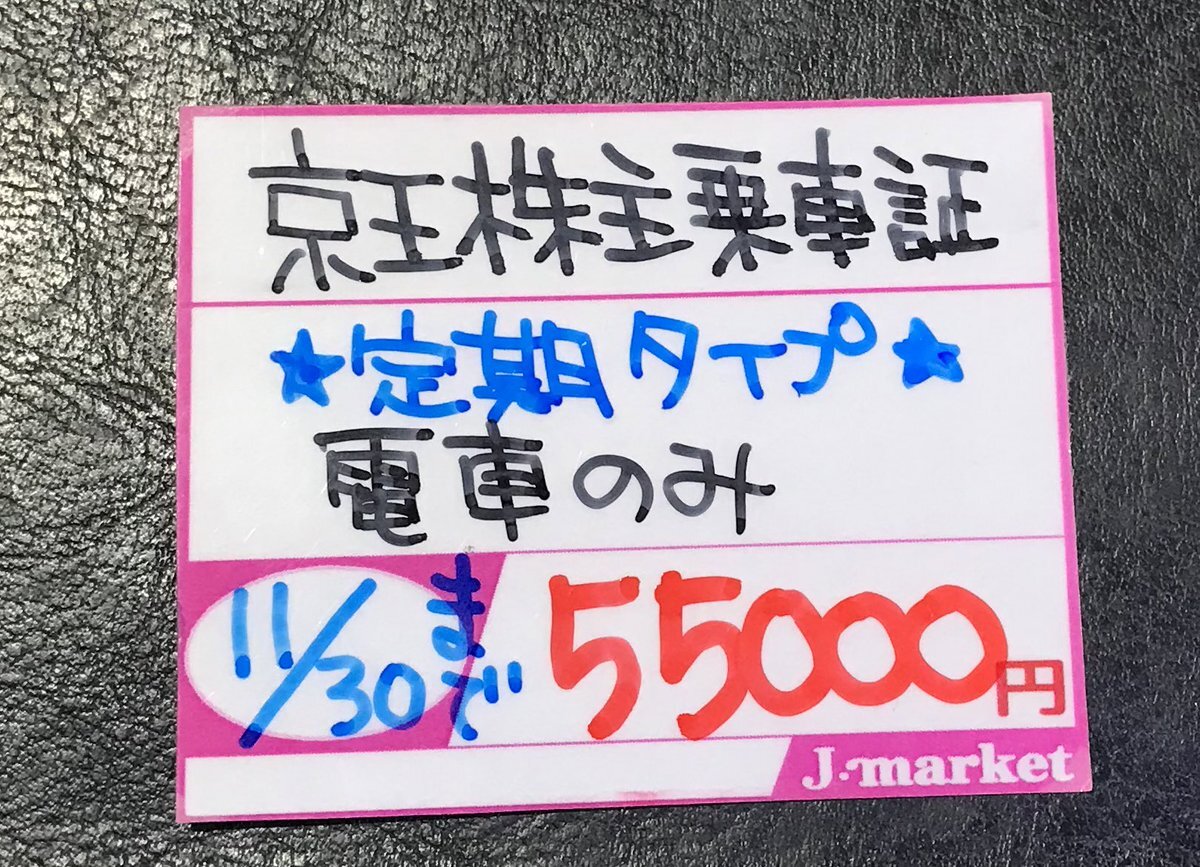 京王株主乗車証
★定期タイプ★
電車のみ
11/30まで
55000円
J-market